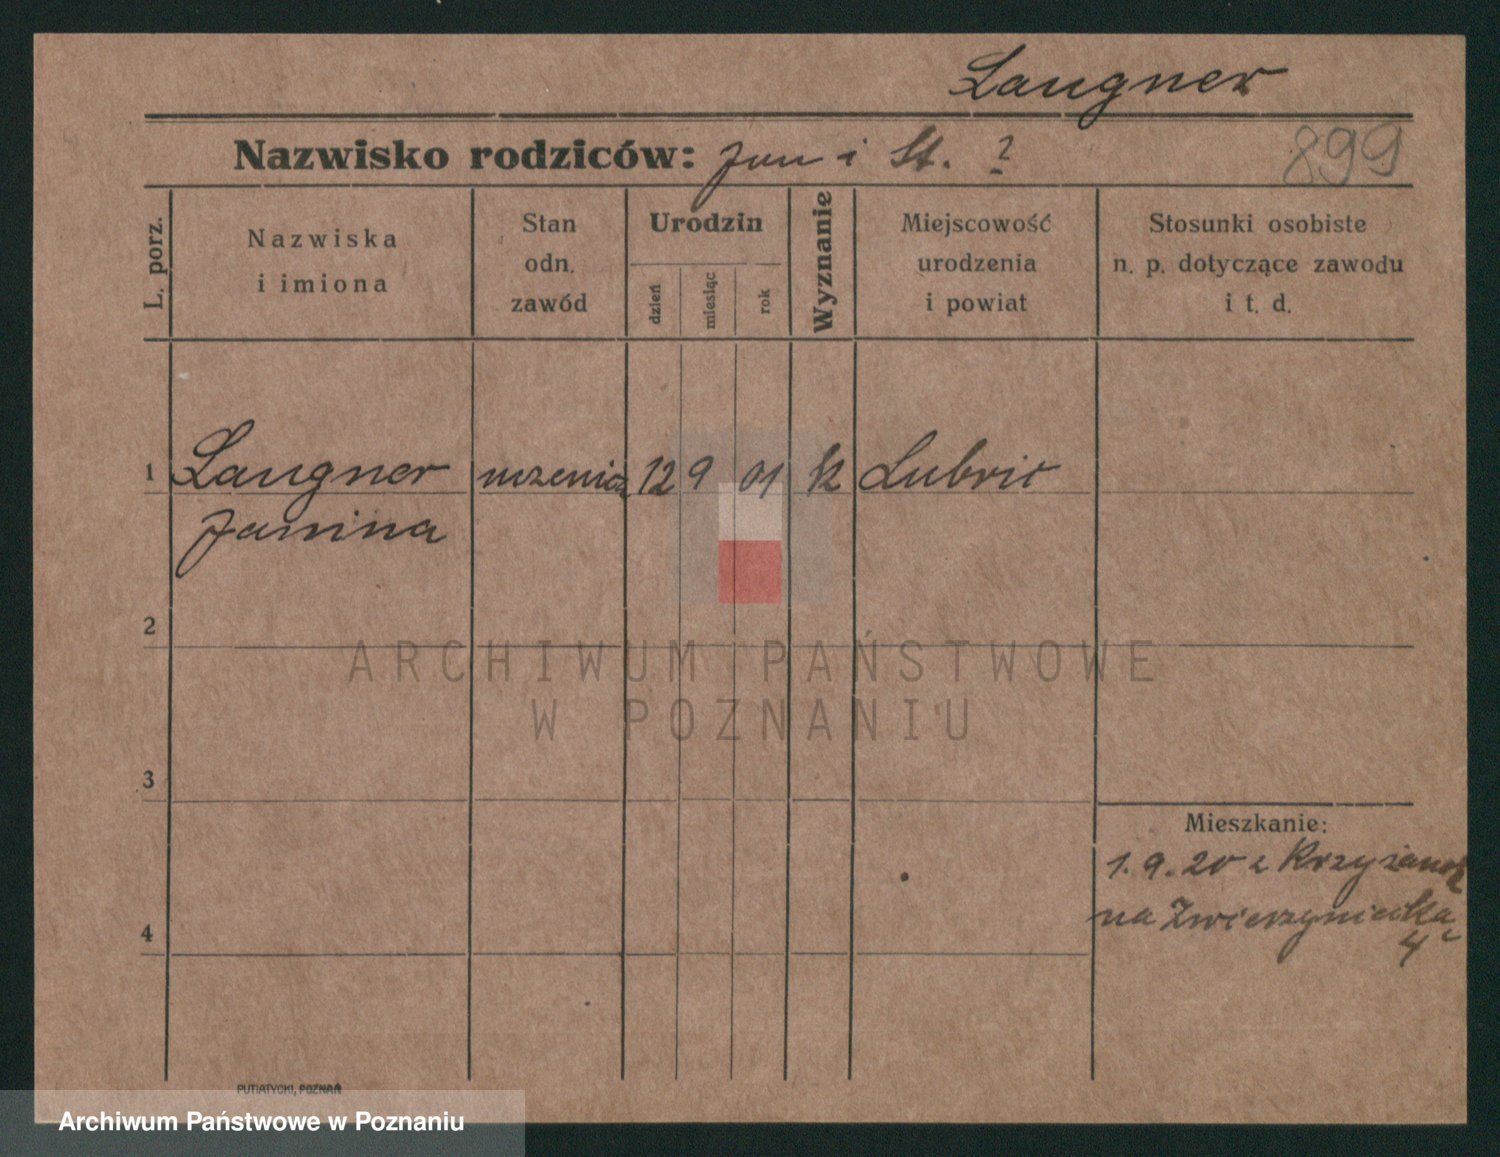 Langner
Nazwisko rodziców: Jan i St. ?
899
L. porz.
Nazwiska
i imiona
Stan
odn.
zawód
Urodzin
dzień
miesiąc
rok
Wyznanie
Miejscowość
urodzenia
i powiat
Stosunki osobiste
n. p. dotyczące zawodu
i t. d.
1 Langner 12 9 01 k
Janina
2
ARCHIWUM PAŃSTWOWE
W POZNANIU
3
Mieszkanie:
1.9.20 z
4 na
4
PUTIATYCKI, POZNAŃ
Archiwum Państwowe w Poznaniu